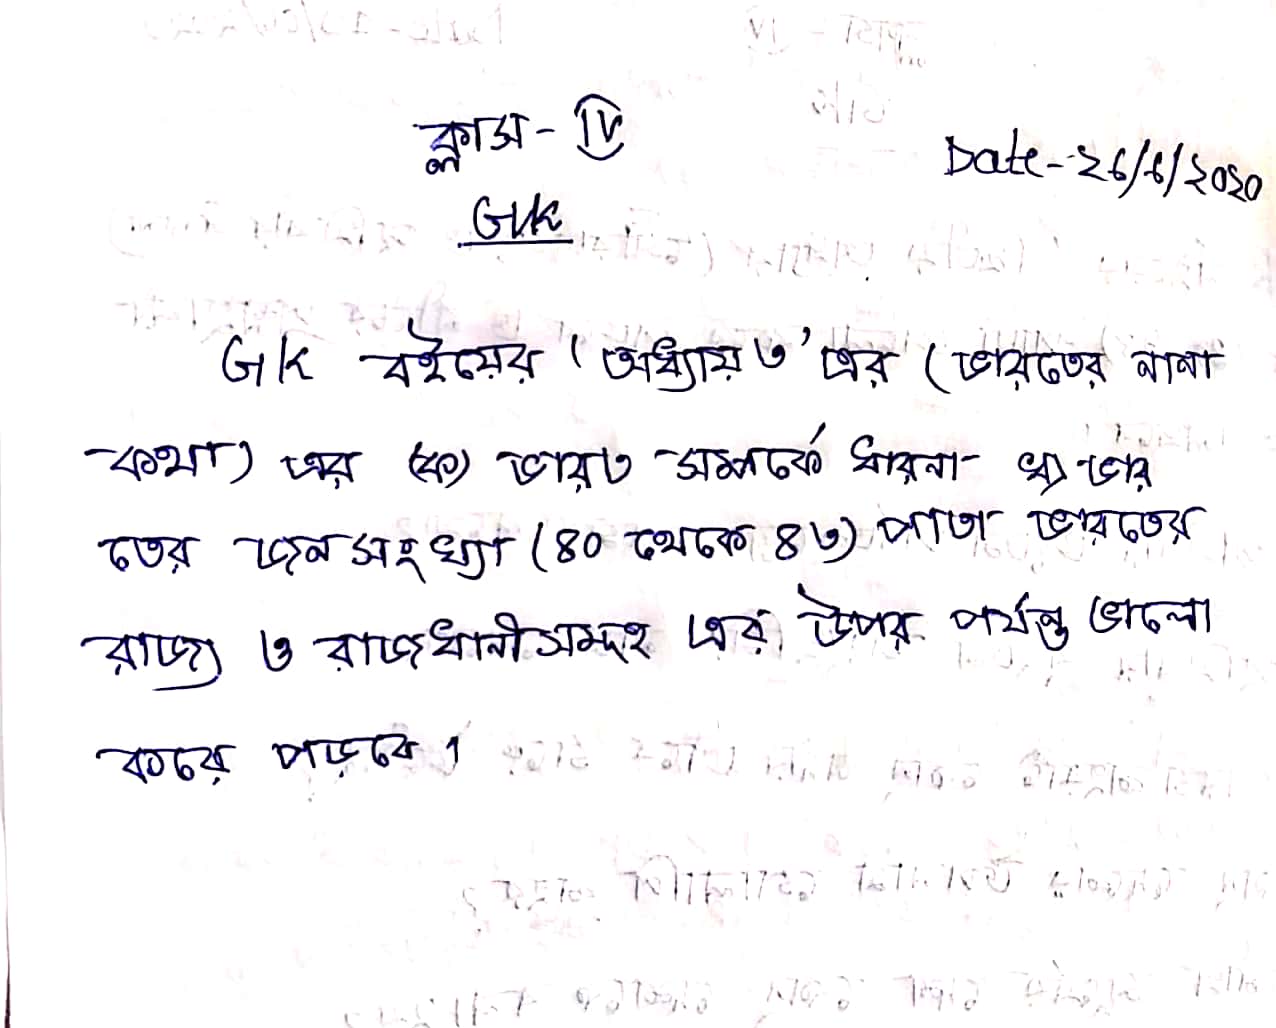 ক্লাস - IV
Date - ২৬/৬/২০২০
GK
GK বইয়ের 'অধ্যায় ৩' এর (ভারতের নানা
কথা) এর (ক) ভারত সম্পর্কে ধারনা খ) ভার
তের জনসংখ্যা (৪০ থেকে ৪৩) পাতা ভারতের
রাজ্য ও রাজধানীসমূহ এর উপর পর্যন্ত ভালো
করে পড়বে।